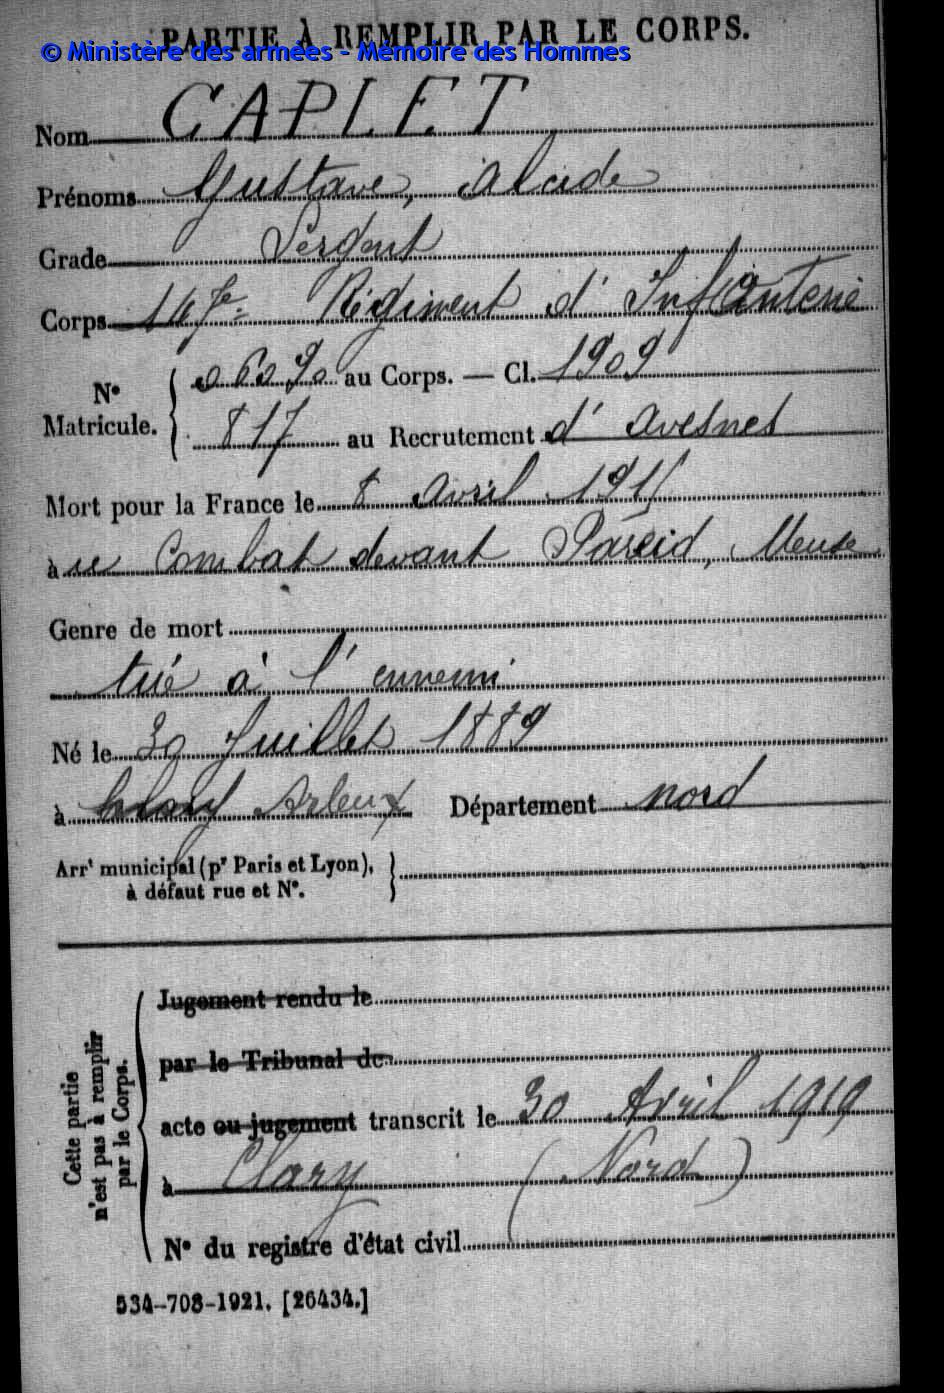 PARTIE À REMPLIR PAR LE CORPS.
© Ministère des armées - Mémoire des Hommes
Nom CAPLET
Prénoms Gustave, Alcide
Grade Sergent
Corps 147e Régiment d'Infanterie
N° Matricule. { 06090 au Corps. — Cl. 1909
817 au Recrutement d'Avesnes
Mort pour la France le 8 Avril 1915
à au Combat devant Pareid, Meuse
Genre de mort
tué à l'ennemi
Né le 30 Juillet 1889
à Clary Arleux Département Nord
Arrt municipal (pr Paris et Lyon),
à défaut rue et N°.
Cette partie
n'est pas à remplir
par le Corps.
Jugement rendu le
par le Tribunal de
acte ou jugement transcrit le 30 Avril 1919
à Clary (Nord)
N° du registre d'état civil
534-708-1921. [26434.]